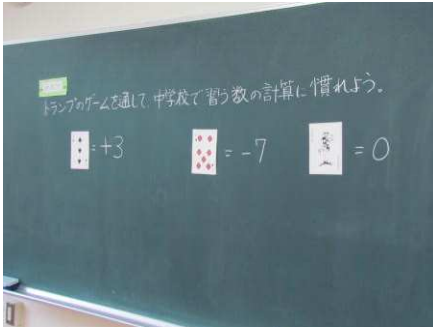 トランプのゲームを通して、中学校で習う数の計算に慣れよう。
=+3
=-7
=0